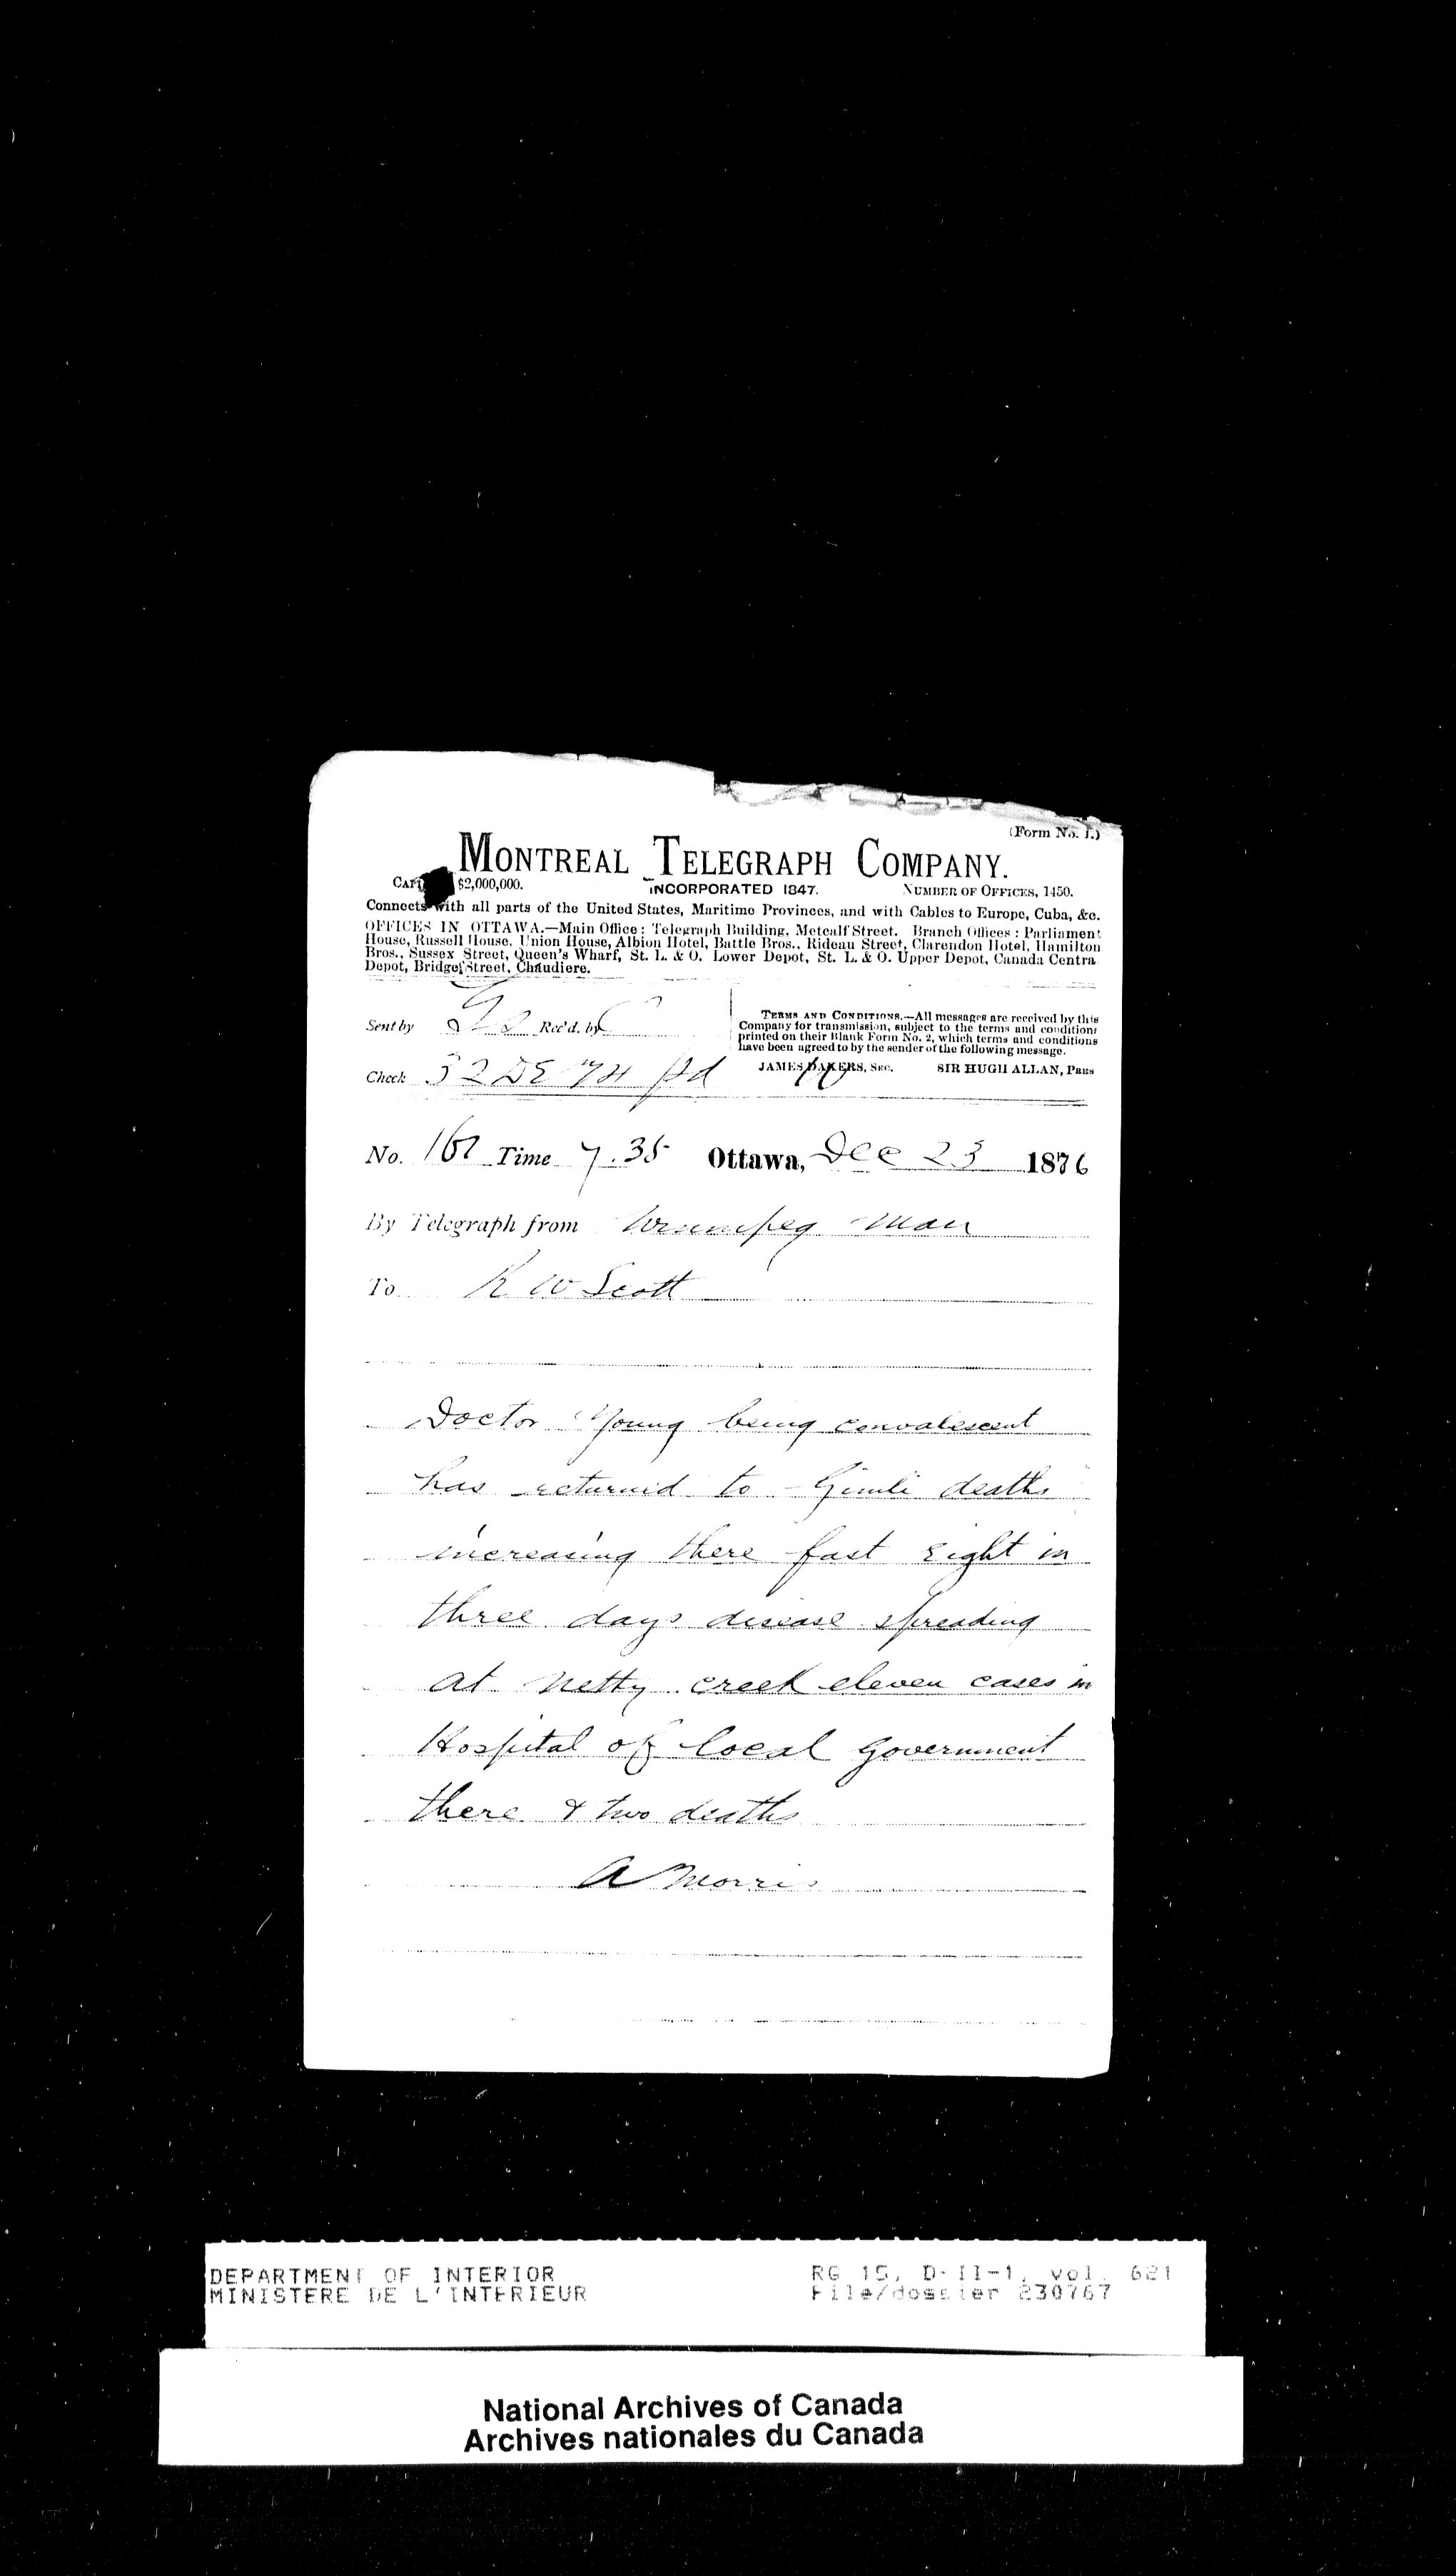 (Form No. 1.)
MONTREAL TELEGRAPH COMPANY.
$2,000,000. INCORPORATED 1847. NUMBER OF OFFICES, 1450.
Connects with all parts of the United States, Maritime Provinces, and with Cables to Europe, Cuba, &c.
OFFICES IN OTTAWA.—Main Office: Telegraph Building, Metcalf Street. Branch Offices: Parliament
House, Russell House, Union House, Albion Hotel, Battle Bros., Rideau Street, Clarendon Hotel, Hamilton
Bros., Sussex Street, Queen's Wharf, St. L. & O. Lower Depot, St. L. & O. Upper Depot, Canada Centra
Depot, Bridge Street, Chaudiere.
Sent by Rec'd. by
TERMS AND CONDITIONS.—All messages are received by this
Company for transmission, subject to the terms and conditions
printed on their Blank Form No. 2, which terms and conditions
have been agreed to by the sender of the following message.
JAMES DAKERS, SEC. SIR HUGH ALLAN, PRES
Check 32 DE Pd
No. Time 7.35 Ottawa, Dec 23 1876
By Telegraph from Winnipeg Man
To R W Scott
Doctor Young being convalescent
has returned to Gimli deaths
increasing there fast Eight in
three days disease spreading
at Netty creek eleven cases in
Hospital of local Government
there & two deaths
A Morris
DEPARTMENT OF INTERIOR RG 15, D-II-1, vol. 621
MINISTERE DE L'INTERIEUR File/dossier 230767
National Archives of Canada
Archives nationales du Canada